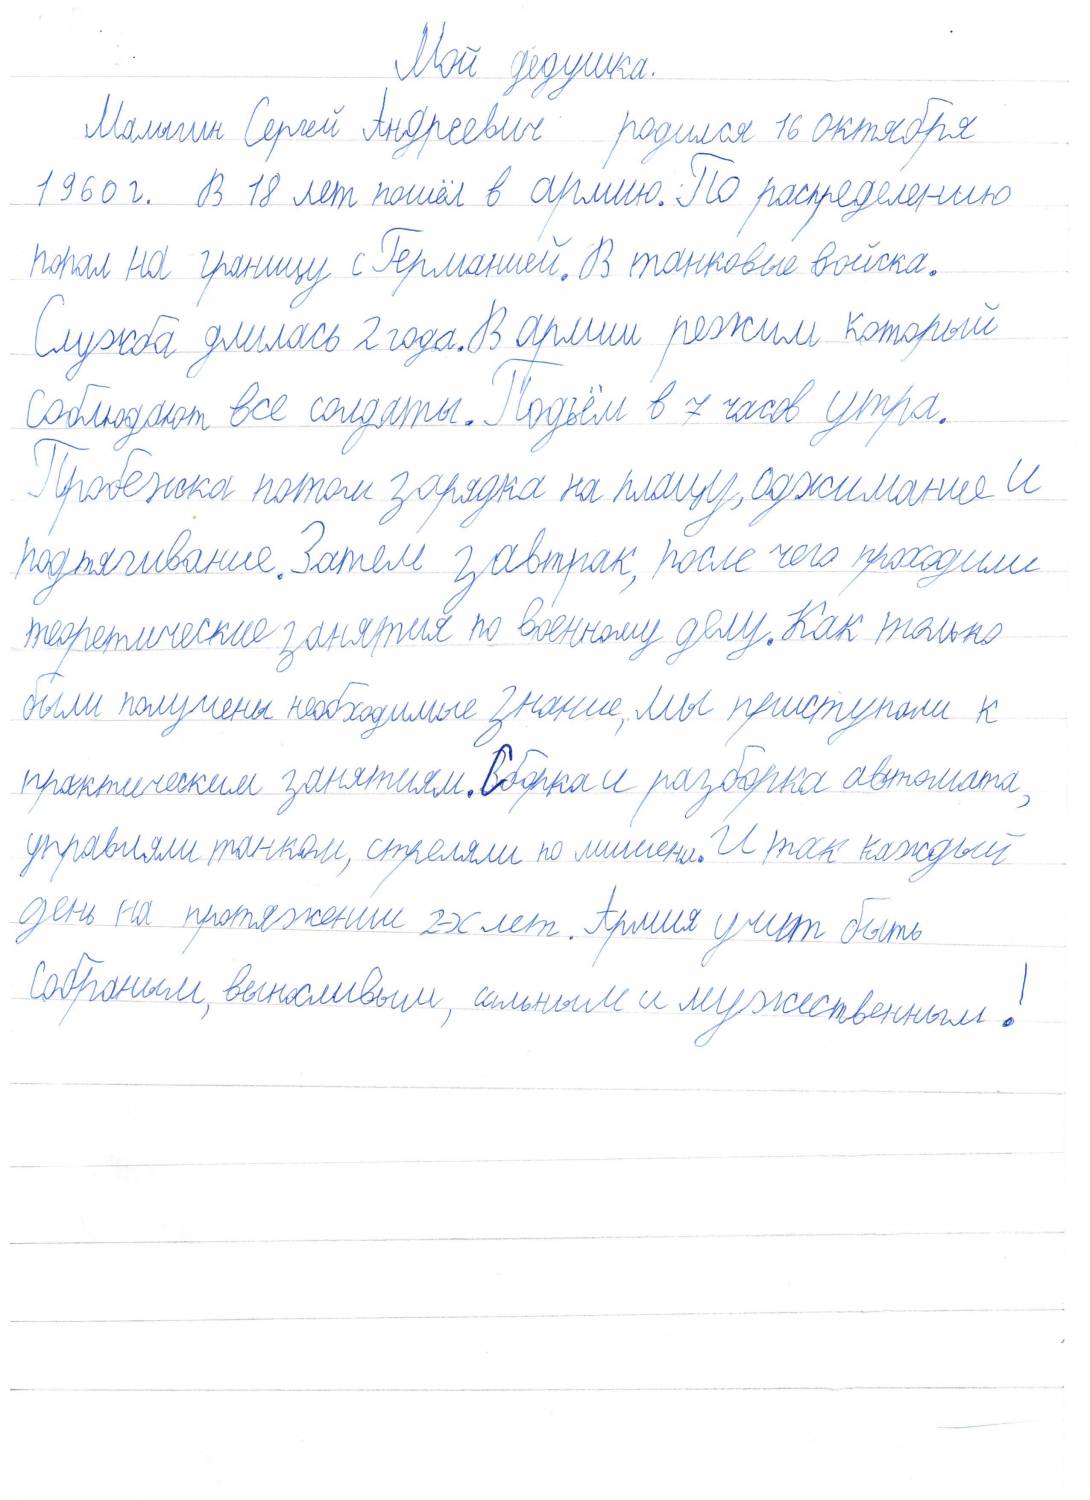 Мой дедушка.
Малыгин Сергей Андреевич родился 16 октября
1960 г. В 18 лет пошёл в армию. По распределению
попал на границу с Германией. В танковые войска.
Служба длилась 2 года. В армии режим который
соблюдают все солдаты. Подъём в 7 часов утра.
Пробежка потом зарядка на плацу, оджимание и
подтягивание. Затем завтрак, после чего проходили
теоретические занятия по военному делу. Как только
были получены необходимые знание, мы приступали к
практическим занятиям. Сборка и разборка автомата,
управляли танком, стреляли по мишени. И так каждый
день на протяжении 2-х лет. Армия учит быть
собраным, выносливым, сильным и мужественным!